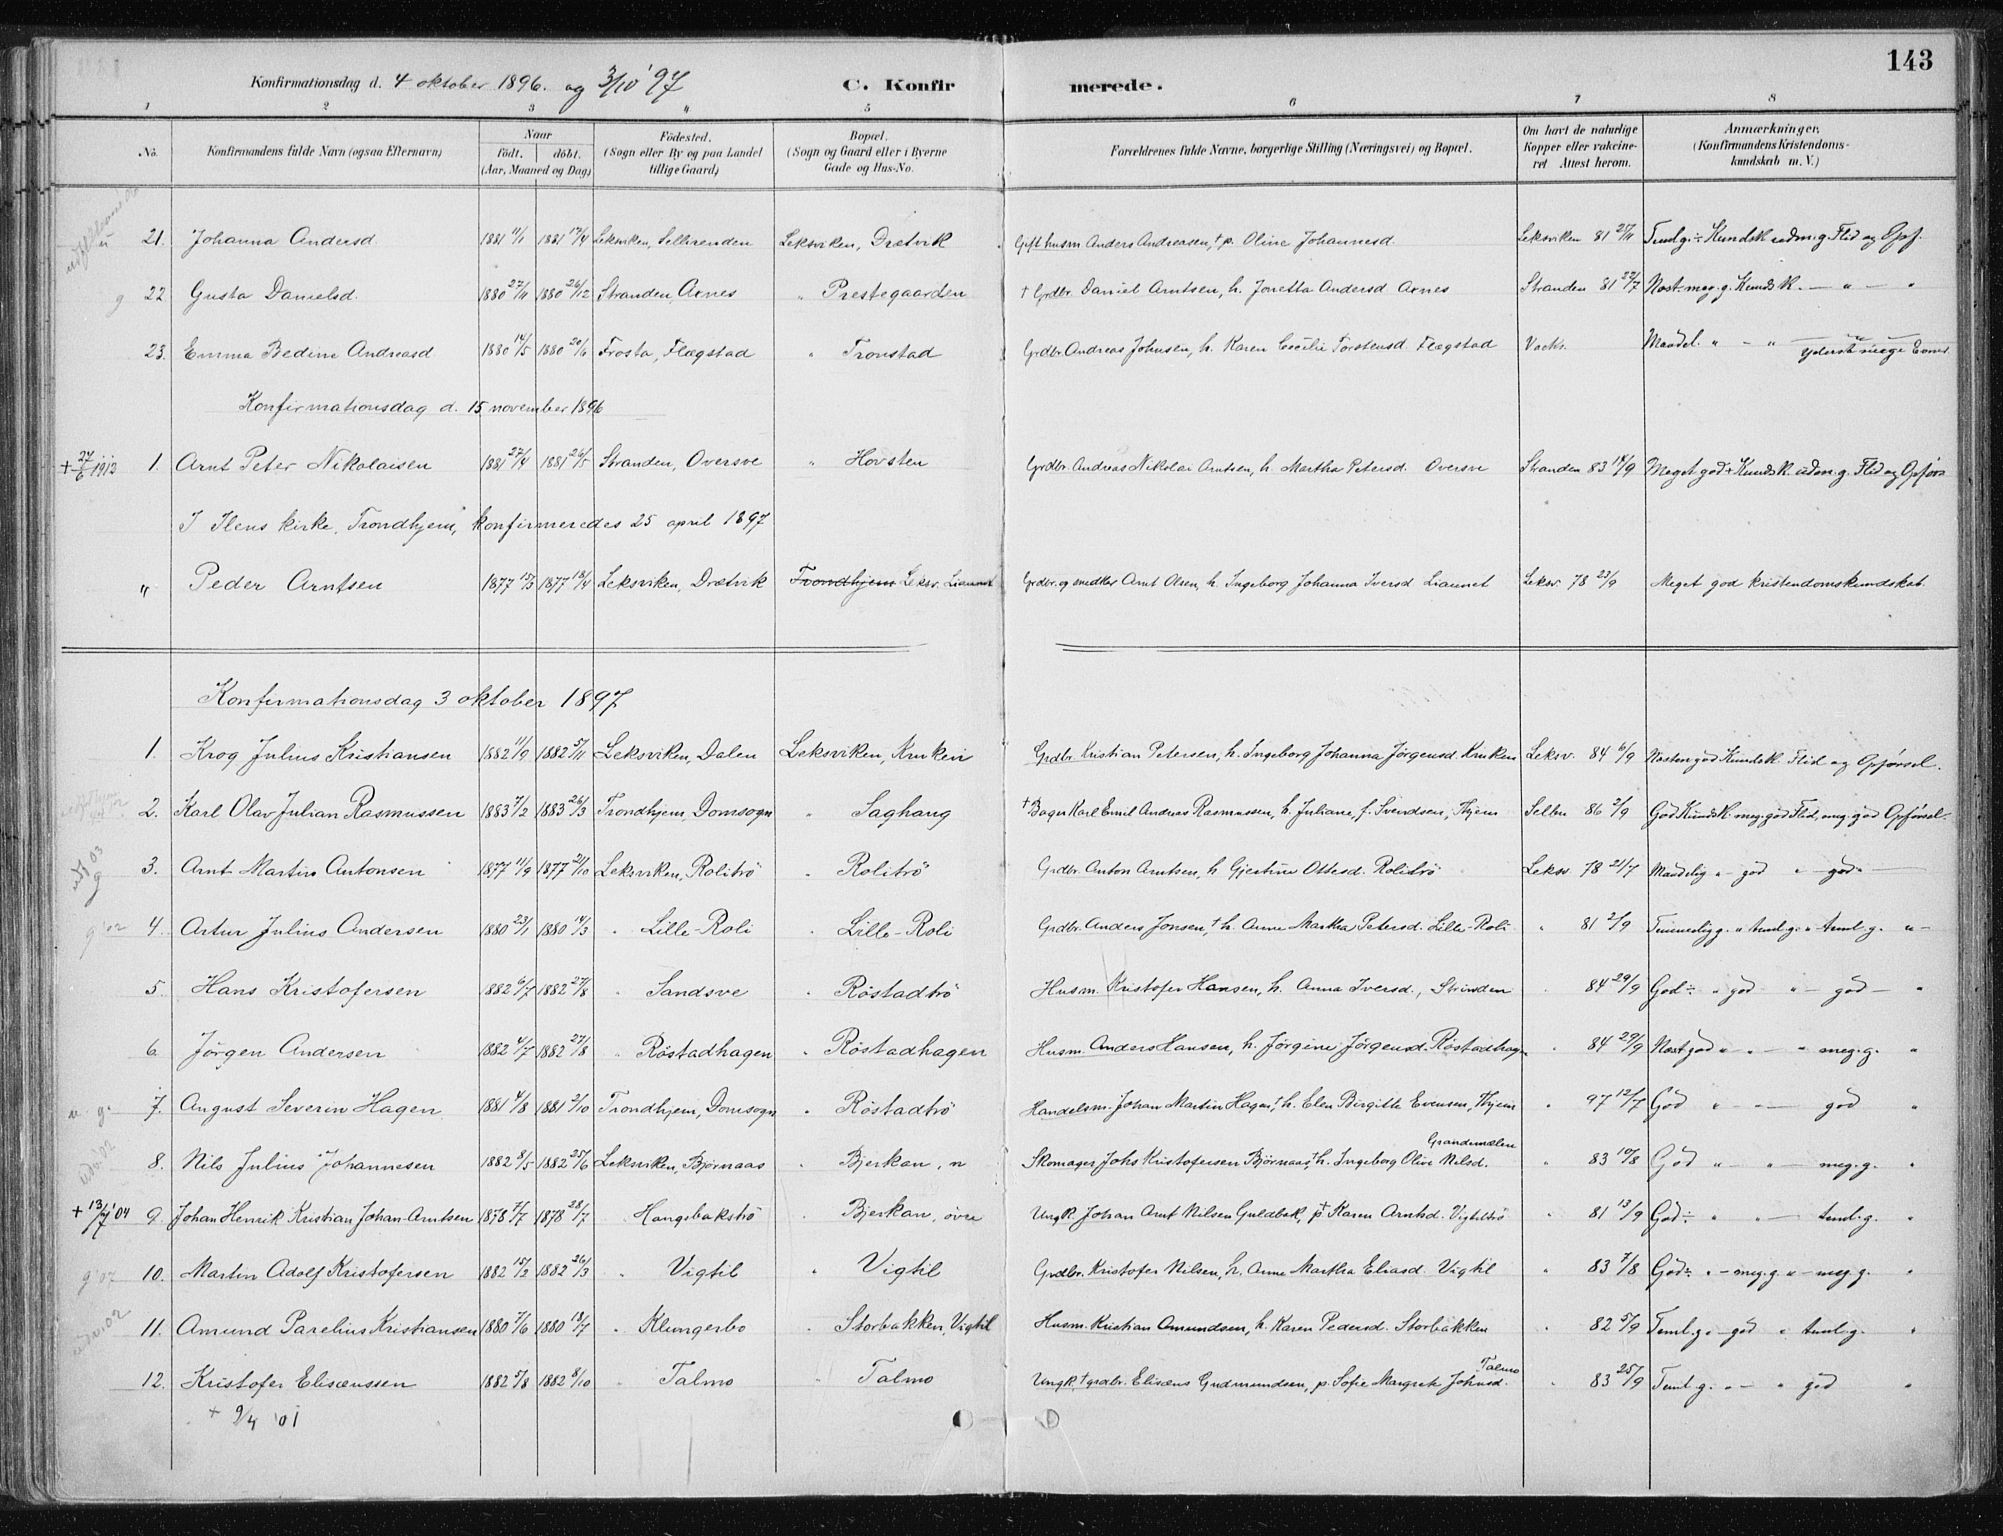 143
Konfirmationsdag d. 4 oktober 1896. og 3/10 '97 C. Konfirmerede.
1 2 3 " 5 6 7 8
No. Konfirmandens fulde Navn (ogsaa Efternavn) Naar födt. döbt. (Aar, Maaned og Dag) Födested. (Sogn eller By og paa Landet tillige Gaard) Bopæl. (Sogn og Gaard eller i Byerne Gade og Hus-No. Forældrenes fulde Navne, borgerlige Stilling (Næringsvei) og Bopæl. Om havt de naturlige Kopper eller vakcineret. Attest herom. Anmærkninger. (Konfirmandens Kristendomskundskab m. V.)
21. Johanna Andersd. 1881 11/1 1881 17/4 Leksviken, Leksviken, Drætvik Gift husm. Anders Andreasen, + p. Oline Johannesd. Leksviken 81 Teml. g. ÷ Kundsk. udm. g. Flid og Opf.
g 22 Gusta Danielsd. 1880 27/11 1880 26/12 Stranden, Axnes " Prestegaarden + Grdbr. Daniel Arntsen, h. Jonetta Andersd Axnes Stranden 81 22/7 Næst. meg. g. Kundsk. — " — "
23. Emma Bedine Andreasd 1880 14/5 1880 20/6 Frosta, Flægstad " Tronstad Grdbr. Andreas Johnsen, h. Karen Cecilie Torstensd. Flægstad Vack. Maadel. " - " yderst
Konfirmationsdag d. 15 november 1896
+ 27/6 1913 1. Arnt Peter Nikolaisen 1881 27/4 1881 26/5 Stranden, Oversve " Hovsten Grdbr. Andreas Nikolai Arntsen, h. Martha Petersd. Oversve Stranden 83 14/9 Meget god + Kundsk. udm. g. Flid og Opførs
I Ilens kirke, Trondhjem, konfirmeredes 25 april 1897
" Peder Arntsen 1877 15/3 1877 18/4 Leksviken, Drætvik Trondhjem Leksv. Liaunet Grdbr. og smedkr Arnt Olsen, h. Ingeborg Johanna Iversd Liaunet Leksv. 78 23/9 Meget god kristendomskundskab.
Konfirmationsdag 3 oktober 1897
1. Krog Julius Kristiansen 1882 11/9 1882 5/11 Leksviken, Dalen Leksviken, Kruken Grdbr. Kristian Petersen, h. Ingeborg Johanna Jørgensd. Kruken Leksv. 84 6/9 Næsten god Kundsk. Flid og Opførsel.
2. Karl Olav Julian Rasmussen 1883 7/2 1883 26/3 Trondhjem, Domsogn " Saghaug + Bager Karl Emil Andreas Rasmussen, h. Juliane, f. Svendsen, Thjem Selbu 86 2/9 God Kundsk. meg. god Flid, meg. god Opførsel.
03 g 3. Arnt Martin Antonsen 1877 11/9 1877 21/10 Leksviken, Rolitrö " Rolitrö Grdbr. Anton Arntsen, h. Gjertine Ottesd. Rolitrö Leksv. 78 21/7 Maadelig " - god " - god " -
g '02 4. Artur Julius Andersen 1880 23/1 1880 14/3 " Lille-Roli " Lille-Roli Grdbr. Anders Jonsen, + h. Anne Martha Petersd. Lille-Roli " 81 2/9 Temmelig g. " teml. g. " teml. g. " -
5. Hans Kristofersen 1882 6/7 1882 27/8 " Sandsve " Röstadtrö Husm. Kristofer Hansen, h. Anna Iversd., Strinden " 84 29/9 God ÷ " god " - god - "
6. Jörgen Andersen 1882 4/7 1882 27/8 " Röstadhagen " Röstadhagen Husm. Anders Hansen, h. Jørgine Jørgensd. Röstadhagen " 84 29/9 Næst god " " - " meg. g. "
u. g. 7. August Severin Hagen 1881 4/8 1881 2/10 Trondhjem, Domsogn " Röstadtrö Handelsm. Johan Martin Hagen, + h. Elen Birgitte Evensen, Thjem " 97 12/7 God " - - god "
8. Nils Julius Johannesen 1882 8/5 1882 25/6 Leksviken, Björnaas " Bjerkan, n Skomager Johs Kristofersen Björnaas, + h. Ingeborg Olive Nilsd. Grandemælen " 83 10/8 God " - " - meg. g. "
+ 13/7 '04 9. Johan Henrik Kristian Johan-Arntsen 1878 7/7 1878 28/7 " Haugsbakströ " Bjerkan, övre Ungk. Johan Arnt Nilsen Guldbak, p. + Karen Arntsd. Vigtiltrö " 81 13/9 God ÷ " " - teml. g. "
g '02 10. Martin Adolf Kristofersen 1882 15/2 1882 26/3 " Vigtil " Vigtil Grdbr. Kristofer Nilsen, h. Anne Martha Eliasd. Vigtil " 83 7/8 God ÷ " - meg. g. " - meg. g. "
11. Amund Parelius Kristiansen 1880 7/6 1880 18/7 " Klungerbo " Storbakken, Vigtil Husm. Kristian Amundsen, h. Karen Pedersd. Storbakken " 82 5/9 Teml. g. " - god " teml. g. "
12. Kristofer Eliseussen 1882 5/8 1882 8/10 " Talmo " Talmo Ungk. + grdbr. Eliseus Gudmundsen, p. Sofie Margrete Johnsd. Talmo " 83 25/9 Teml. g. " - " god "
+ 9/4 '01